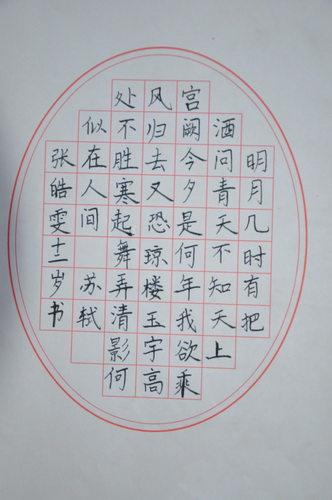 明月几时有把
酒问青天不知天上
宫阙今夕是何年我欲乘
风归去又恐琼楼玉宇高
处不胜寒起舞弄清影何
似在人间 苏轼
张皓雯十二岁书